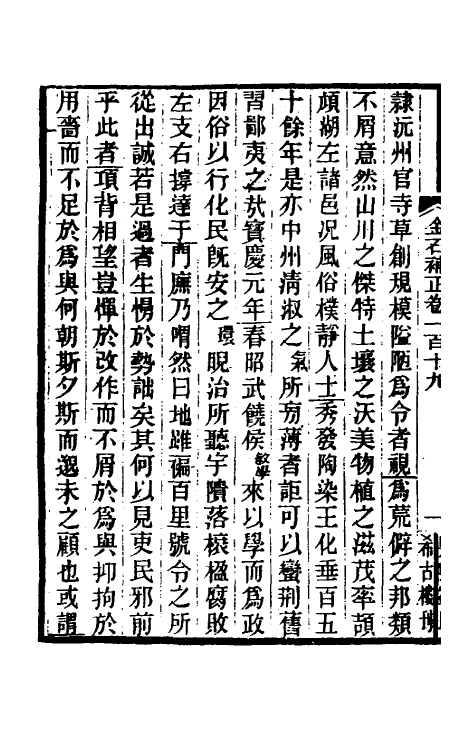 隸沅州官寺草創現模隘陋爲令者視爲荒僻之邦類
不屑意然山川之傑特土壤之沃美物植之滋茂率頡
頏湖左諸邑况風俗樸靜人士秀發陶染王化垂百五
十餘年是亦中州淸淑之氣所旁薄者詎可以蠻荆舊
習鄙夷之㢤寳慶元年春昭武饒侯敏學來以學而爲政
因俗以行化民旣安之環睨治所聽宇隤落榱楹腐敗
左支右撐達于門廉乃喟然曰地雖褊百里號令之所
從出誠若是過者生慢於勢詘矣其何以見吏民邪前
乎此者項背相望豈憚於改作而不屑於爲與抑拘於
用嗇而不足於爲與何朝斯夕斯而邈未之顧也或謂
金石補正卷一百十九
一
希古樓刊